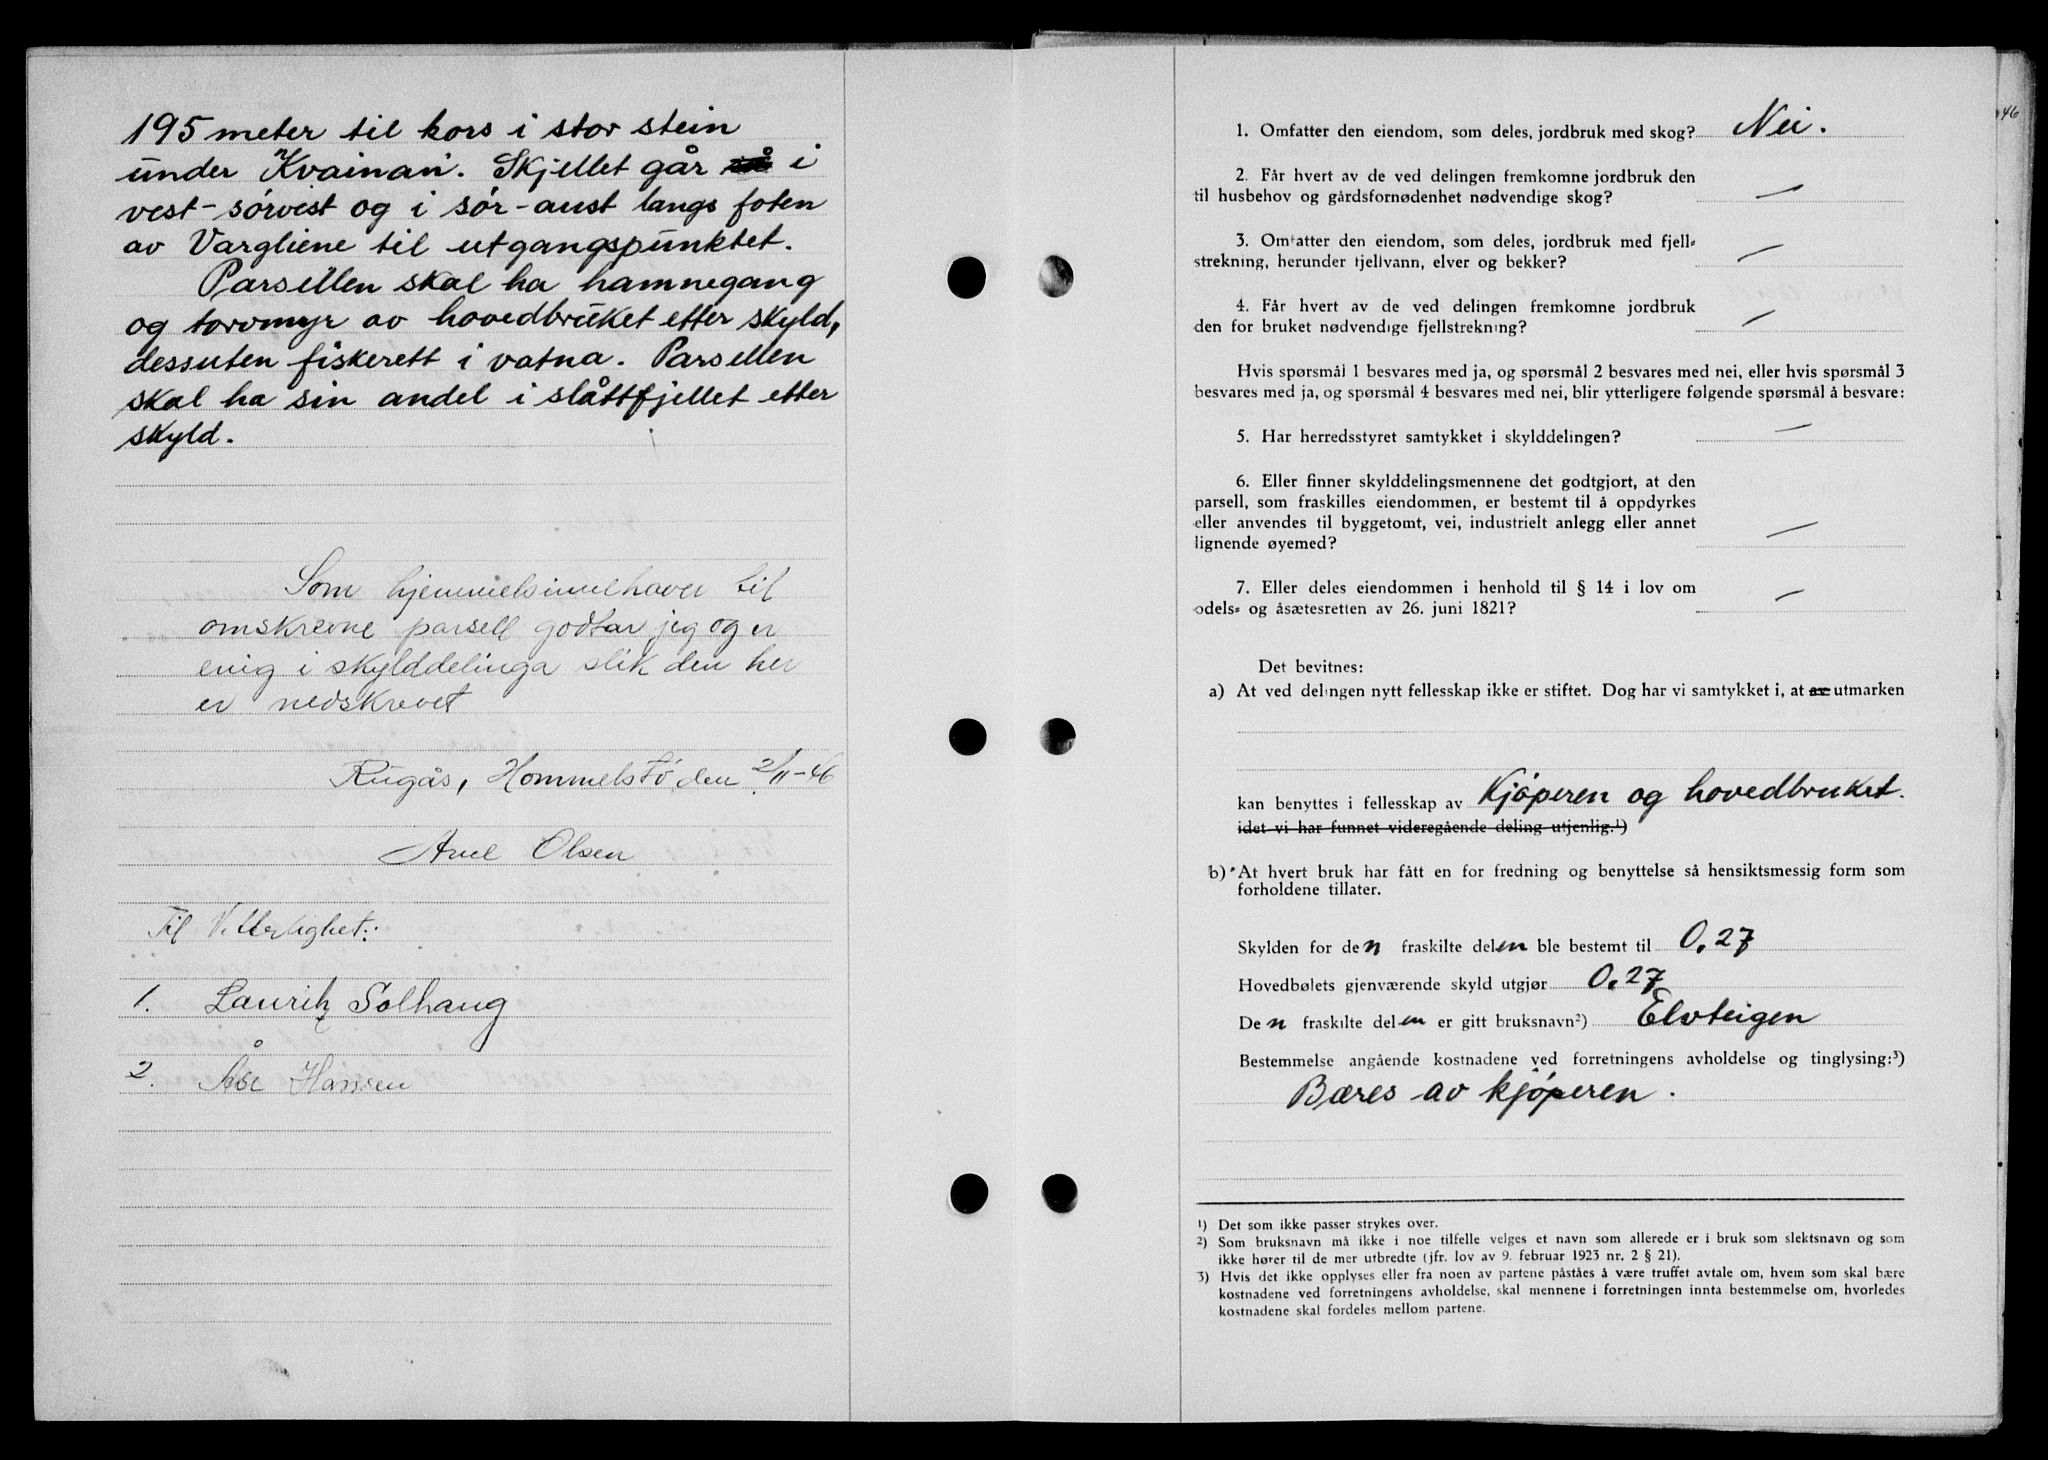 195 meter til kors i stor stein
under "Kvainan". Skjellet går i
vest-sørvest og i sør-aust langs foten
av Vargliene til utgangspunktet.
Parsellen skal ha hamnegang
og torvmyr av hovedbruket etter skyld,
dessuten fiskerett i vatna. Parsellen
skal ha sin andel i slåttfjellet etter
skyld.
Som hjemmelsinnehaver til
omskrevne parsell godtar jeg og er
enig i skylddelinga slik den her
er nedskrevet
Rugås, Hommelstø, den 2/11-46
Axel Olsen
Til Vitterlighet:
1. Lauritz Solhaug
2. Hansen
46
1. Omfatter den eiendom, som deles, jordbruk med skog? Nei.
2. Får hvert av de ved delingen fremkomne jordbruk den
til husbehov og gårdsfornødenhet nødvendige skog? —
3. Omfatter den eiendom, som deles, jordbruk med fjell-
strekning, herunder fjellvann, elver og bekker? —
4. Får hvert av de ved delingen fremkomne jordbruk
den for bruket nødvendige fjellstrekning? —
Hvis spørsmål 1 besvares med ja, og spørsmål 2 besvares med nei, eller hvis spørsmål 3
besvares med ja, og spørsmål 4 besvares med nei, blir ytterligere følgende spørsmål å besvare:
5. Har herredsstyret samtykket i skylddelingen? —
6. Eller finner skylddelingsmennene det godtgjort, at den
parsell, som fraskilles eiendommen, er bestemt til å oppdyrkes
eller anvendes til byggetomt, vei, industrielt anlegg eller annet
lignende øyemed? —
7. Eller deles eiendommen i henhold til § 14 i lov om
odels- og åsætesretten av 26. juni 1821? —
Det bevitnes:
a) At ved delingen nytt fellesskap ikke er stiftet. Dog har vi samtykket i, at av utmarken
kan benyttes i fellesskap av Kjøperen og hovedbruket.
idet vi har funnet videregående deling utjenlig.¹)
b) At hvert bruk har fått en for fredning og benyttelse så hensiktsmessig form som
forholdene tillater.
Skylden for den fraskilte delen ble bestemt til 0,27
Hovedbølets gjenværende skyld utgjør 0,27
Den fraskilte delen er gitt bruksnavn²) Elvteigen
Bestemmelse angående kostnadene ved forretningens avholdelse og tinglysing:³)
Bæres av kjøperen.
¹) Det som ikke passer strykes over.
²) Som bruksnavn må ikke i noe tilfelle velges et navn som allerede er i bruk som slektsnavn og som
ikke hører til de mer utbredte (jfr. lov av 9. februar 1923 nr. 2 § 21).
3) Hvis det ikke opplyses eller fra noen av partene påståes å være truffet avtale om, hvem som skal bære
kostnadene ved forretningens avholdelse, skal mennene i forretningen innta bestemmelse om, hvorledes
kostnadene skal fordeles mellom partene.